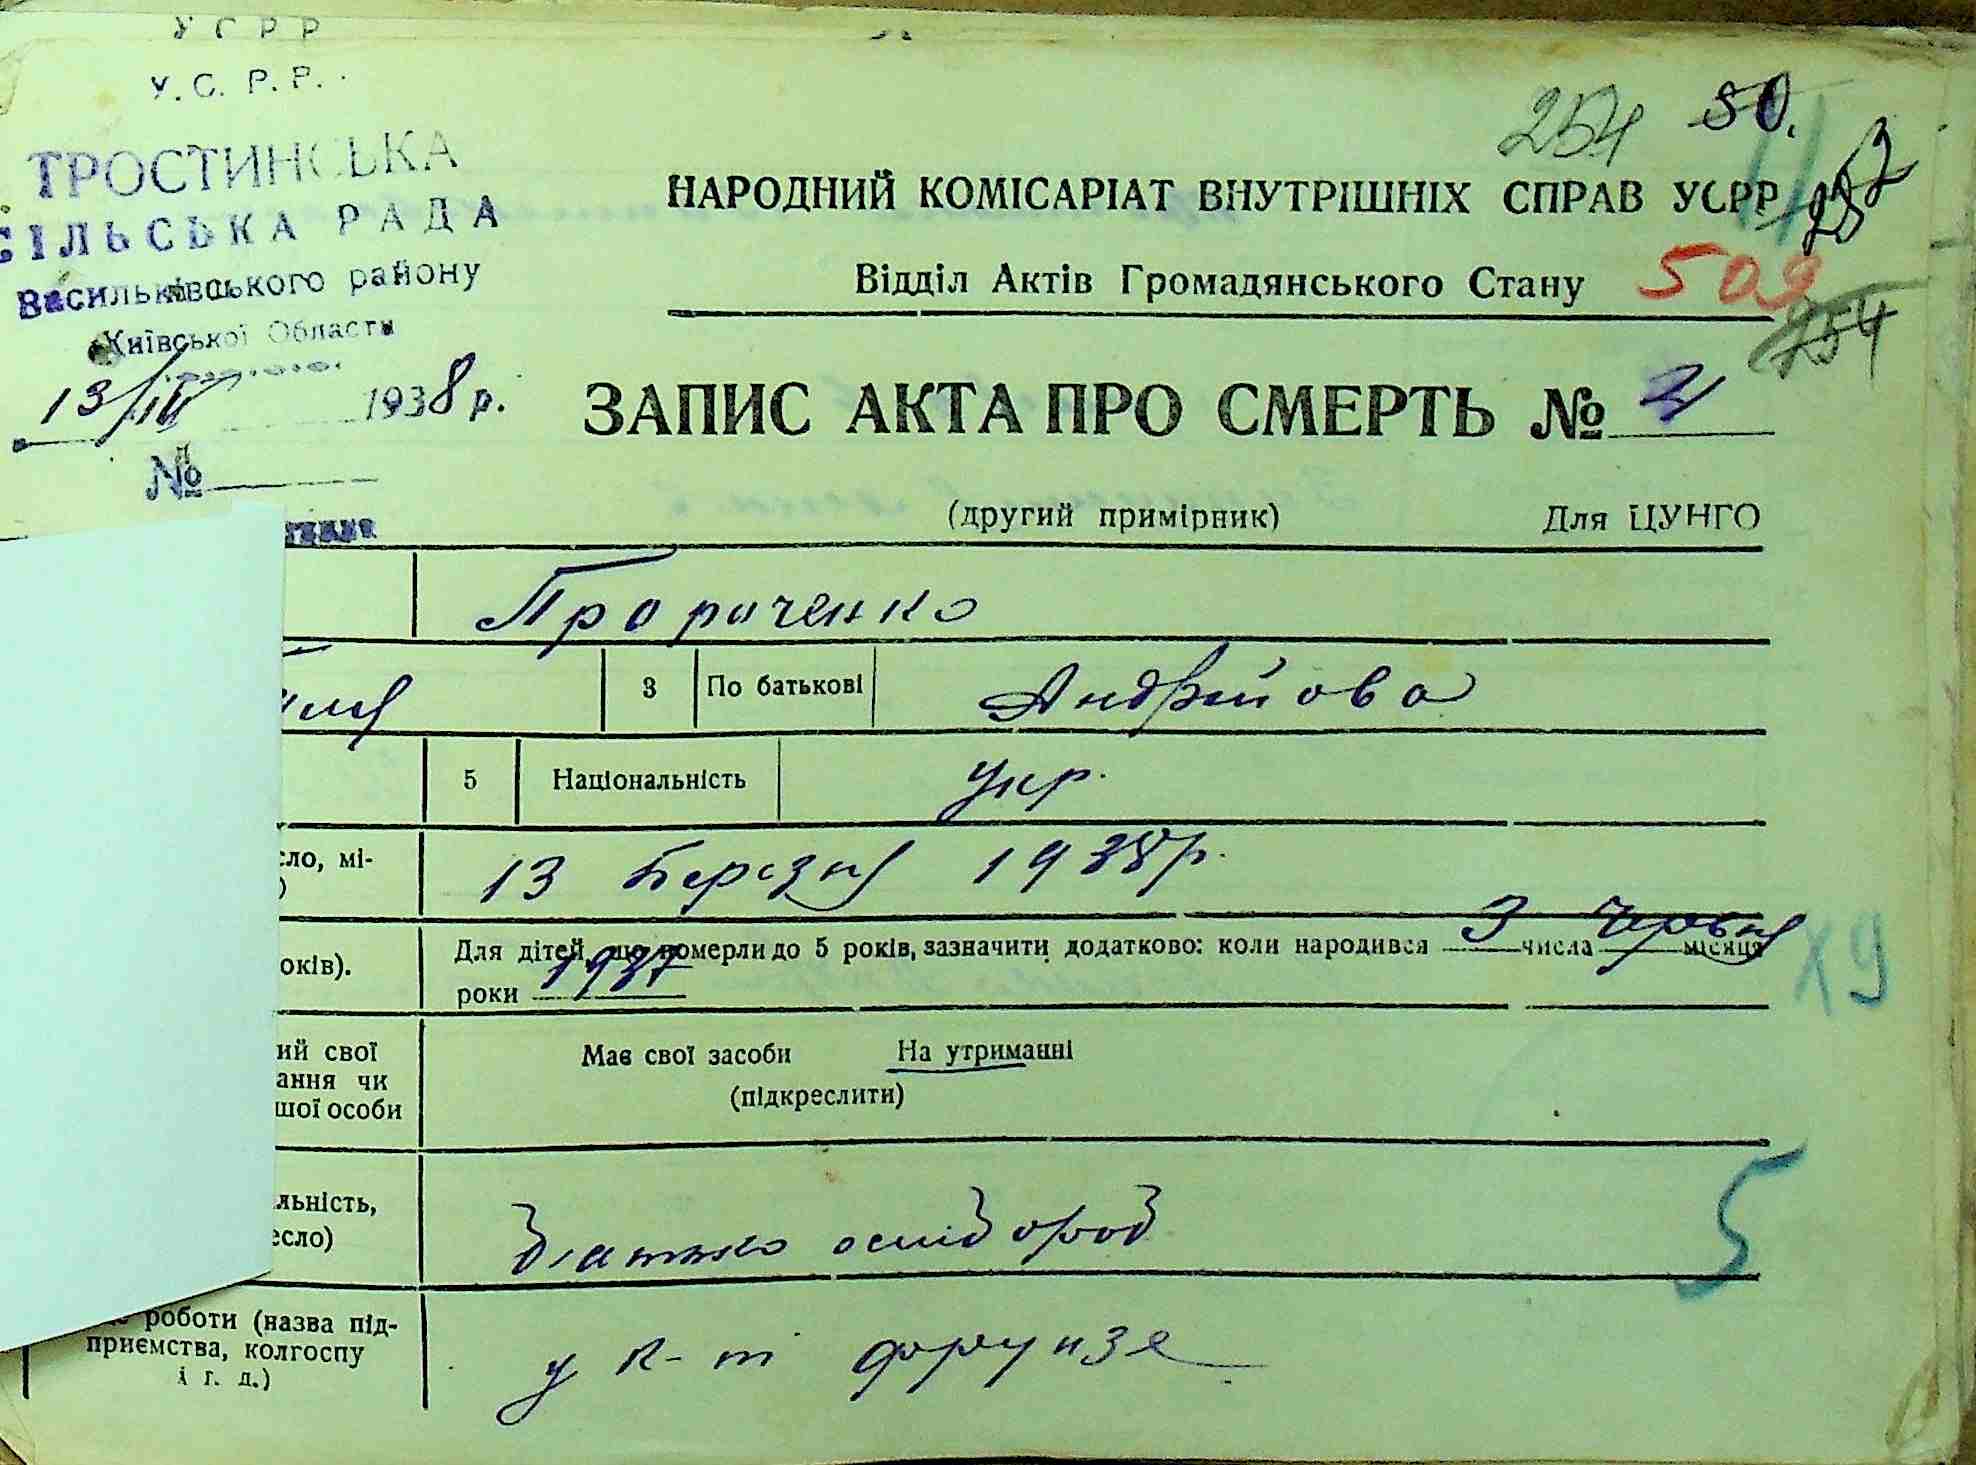 У С Р Р
У. С. Р. Р.
ТРОСТИНСЬКА
СІЛЬСЬКА РАДА
Васильківського району
Київської Області
13/IV 1938 р.
№
254 50.
252
НАРОДНИЙ КОМІСАРІАТ ВНУТРІШНІХ СПРАВ УСРР
Відділ Актів Громадянського Стану
509
254
ЗАПИС АКТА ПРО СМЕРТЬ №
(другий примірник) Для ЦУНГО
Пророченко
3 По батькові Андрійова
5 Національність Укр.
сло, мі- 13 Березня 1938 р.
)
оків). Для дітей, що померли до 5 років, зазначити додатково: коли народився 3 числа Червня місяця
роки 1937
Х9
ий свої Має свої засоби На утриманні
ання чи (підкреслити)
шої особи
льність,
есло) Батько
5
роботи (назва під-
приємства, колгоспу у к-т фрунзе
і г. д.)